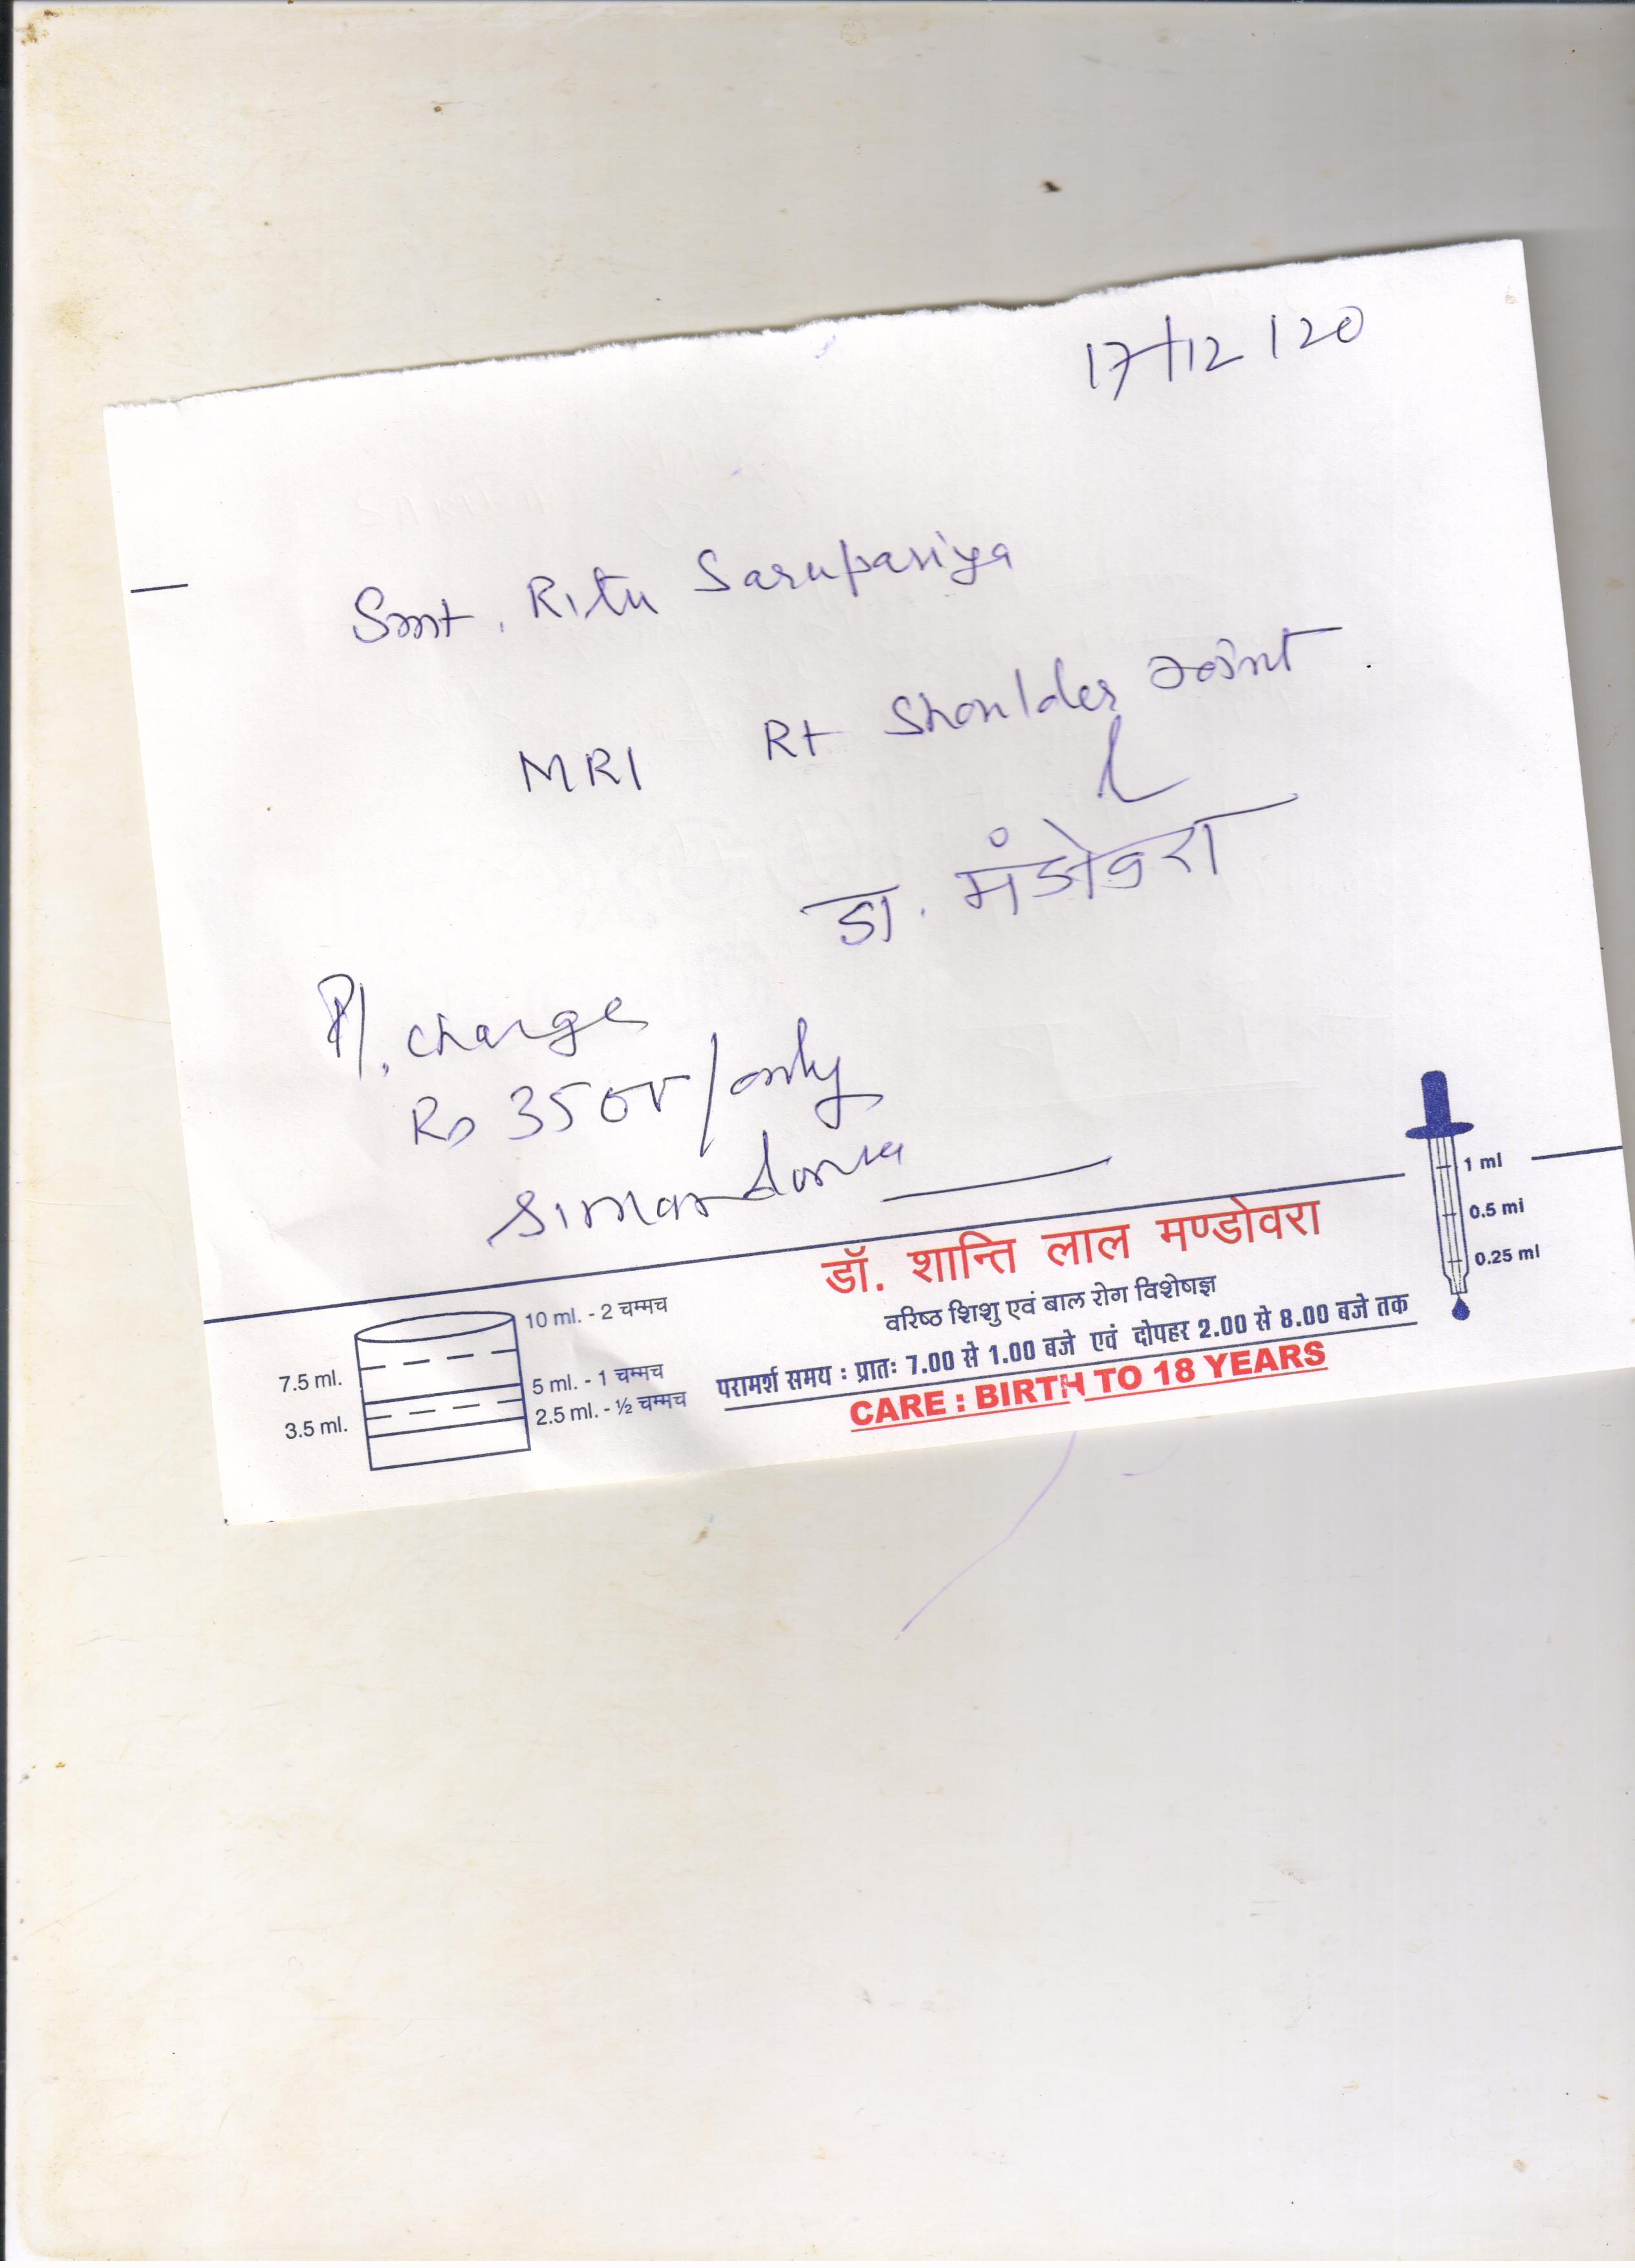 17/12/20
Smt. Ritu Sarupariya
MRI Rt Shoulder Joint.
डा. मंडोवरा
Pl. charge
Rs 3500/only
1 ml
0.5 ml
0.25 ml
डॉ. शान्ति लाल मण्डोवरा
वरिष्ठ शिशु एवं बाल रोग विशेषज्ञ
परामर्श समय : प्रातः 7.00 से 1.00 बजे एवं दोपहर 2.00 से 8.00 बजे तक
CARE : BIRTH TO 18 YEARS
10 ml. - 2 चम्मच
7.5 ml.
5 ml. - 1 चम्मच
3.5 ml.
2.5 ml. - ½ चम्मच